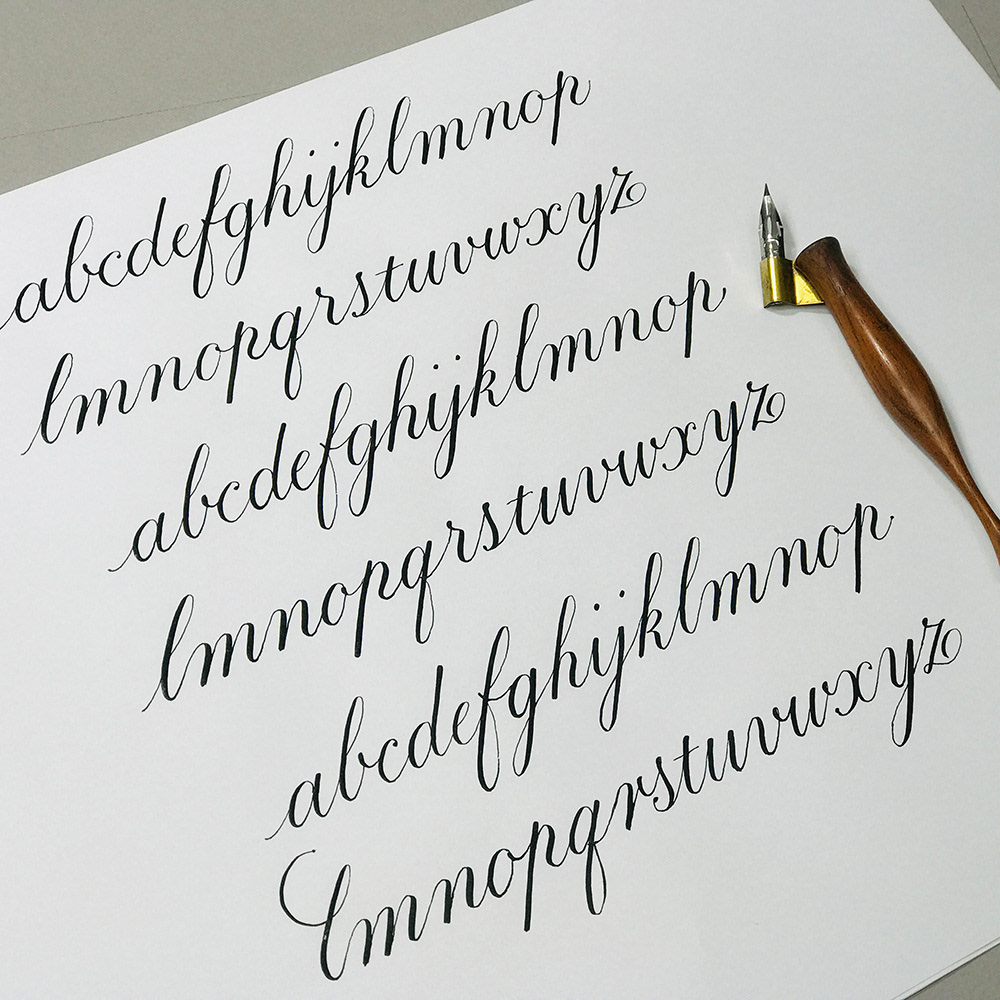 abcdefghijklmnop
lmnopqrstuvwxyz
abcdefghijklmnop
lmnopqrstuvwxyz
abcdefghijklmnop
lmnopqrstuvwxyz